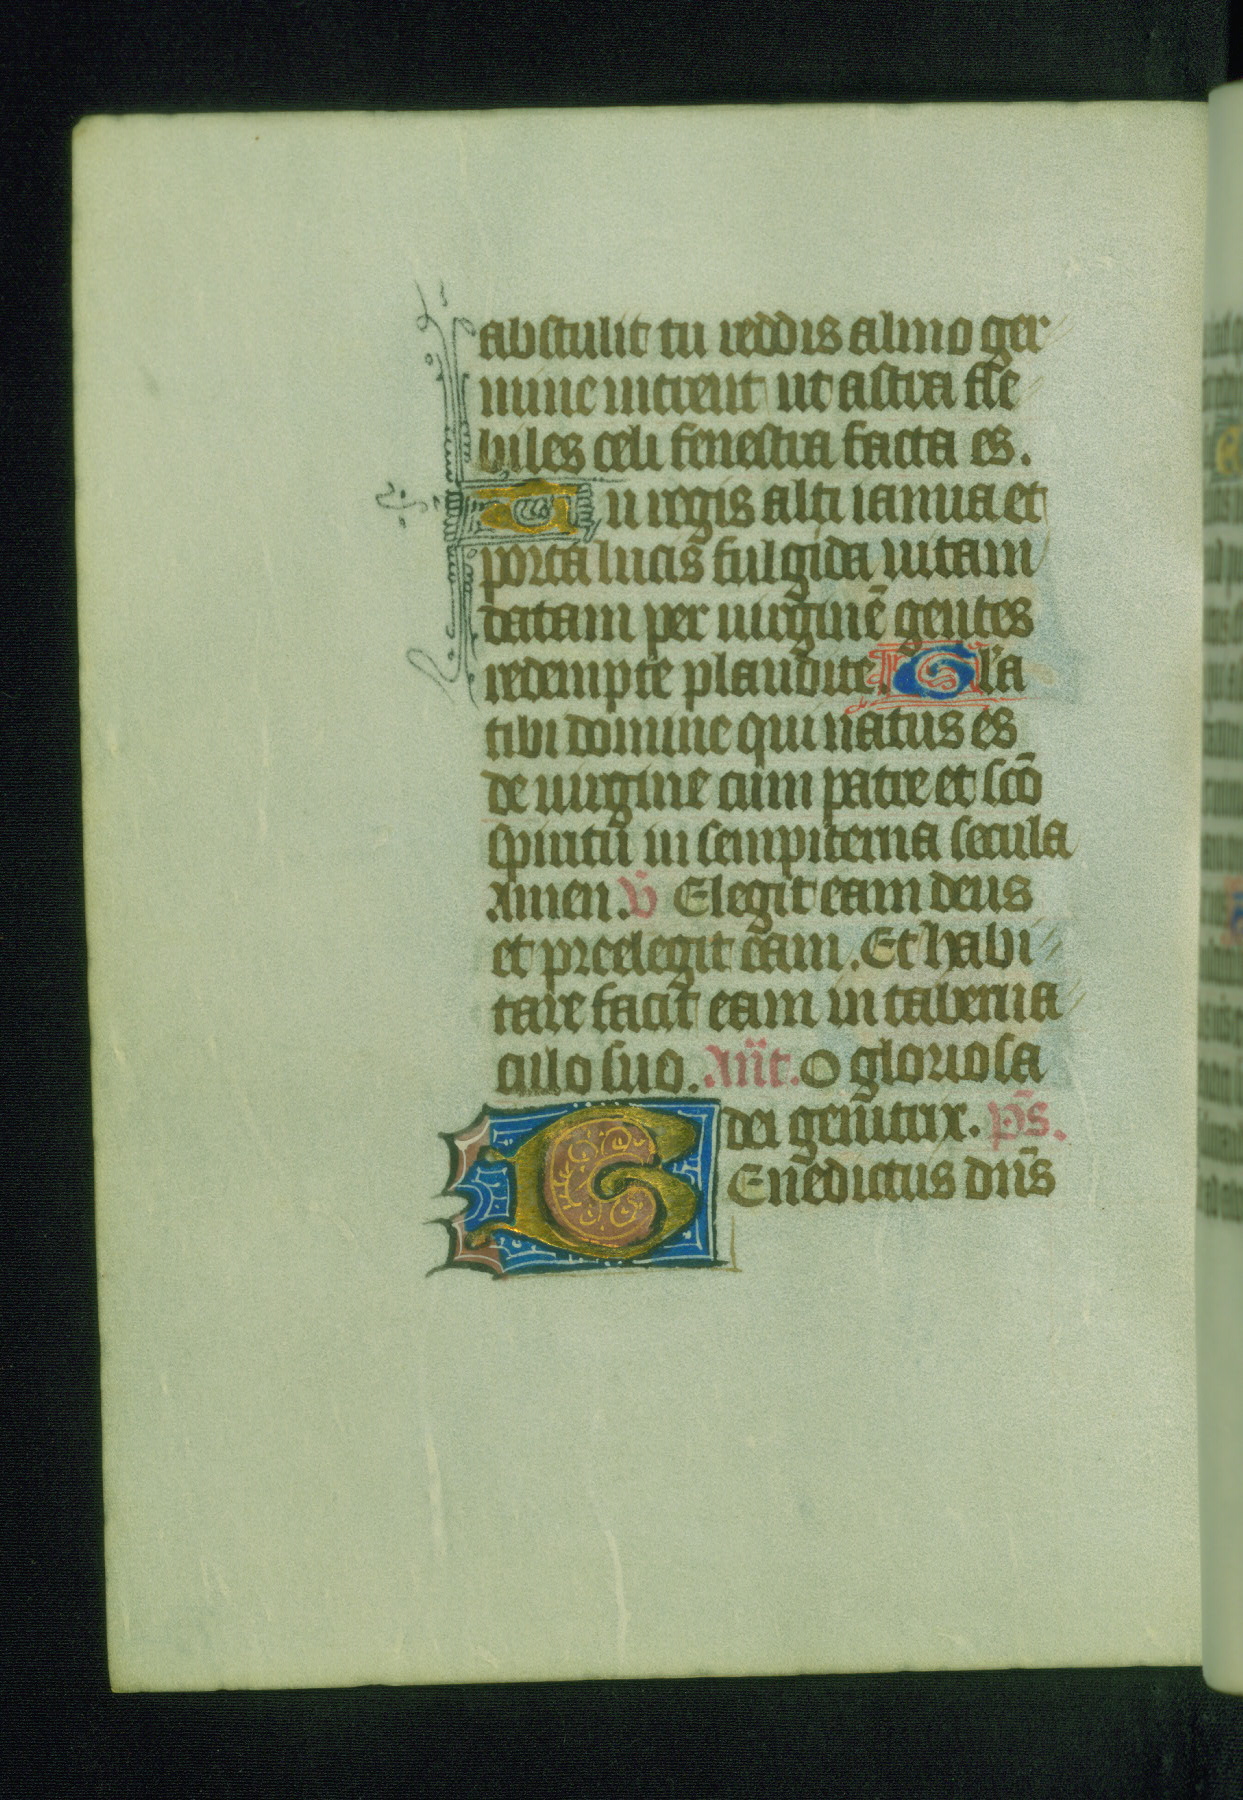 abstulit tu reddis almo ger
mine intrent ut astra fle
biles celi fenestra facta es.
Tu regis alti ianua et
porta lucis fulgida uitam
datam per uirginē gentes
redempte plaudite. Gl'a
tibi domine qui natus es
de uirgine cum patre et scō
spiritu in sempiterna secula
Amen. V̄ Elegit eam deus
et preelegit eam. Et habi
tare facit eam in taberna
culo suo. Añt. O gloriosa
dei genitrix. p̄s.
BEnedictus dñs